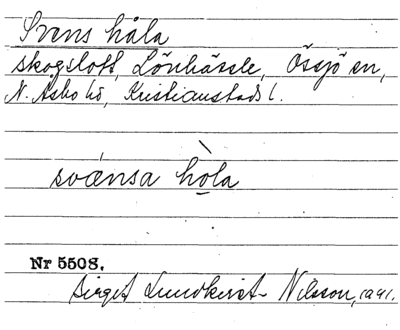 Svens håla
skogslott, Lönhässle, Össjö sn,
N. Åsbo hd, Kristianstads l.
svænsa hòla
Nr 5508.
Birgit Lundkvist-Nilsson, 1941.